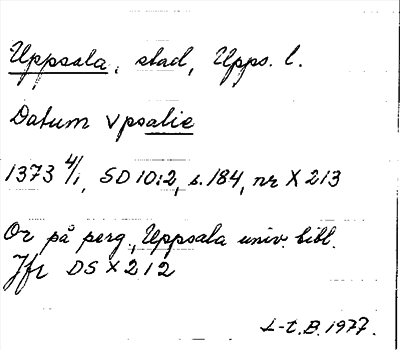 Uppsala, stad, Upps. l.
Datum Vpsalie
1373 4/1, SD 10:2, s. 184, nr X 213
Or på perg., Uppsala univ. bibl.
Jfr DS X 212
L-t. B. 1977.